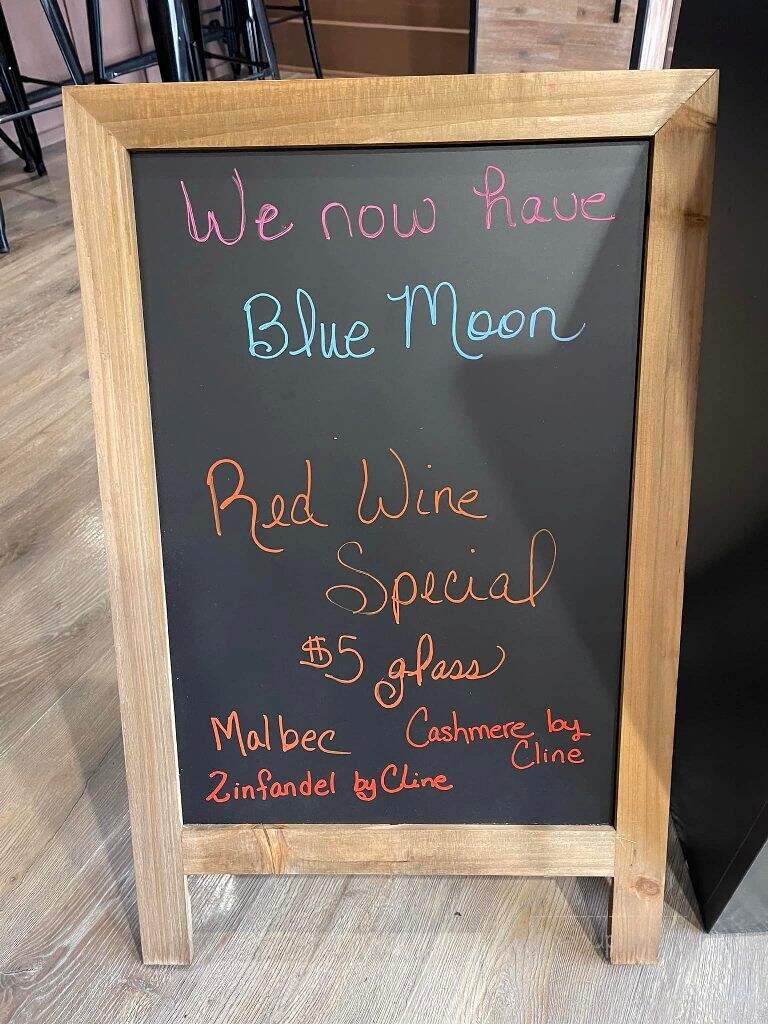 We now have
Blue Moon
Red Wine
Special
$5 glass
Malbec
Cashmere by
Cline
Zinfandel by Cline